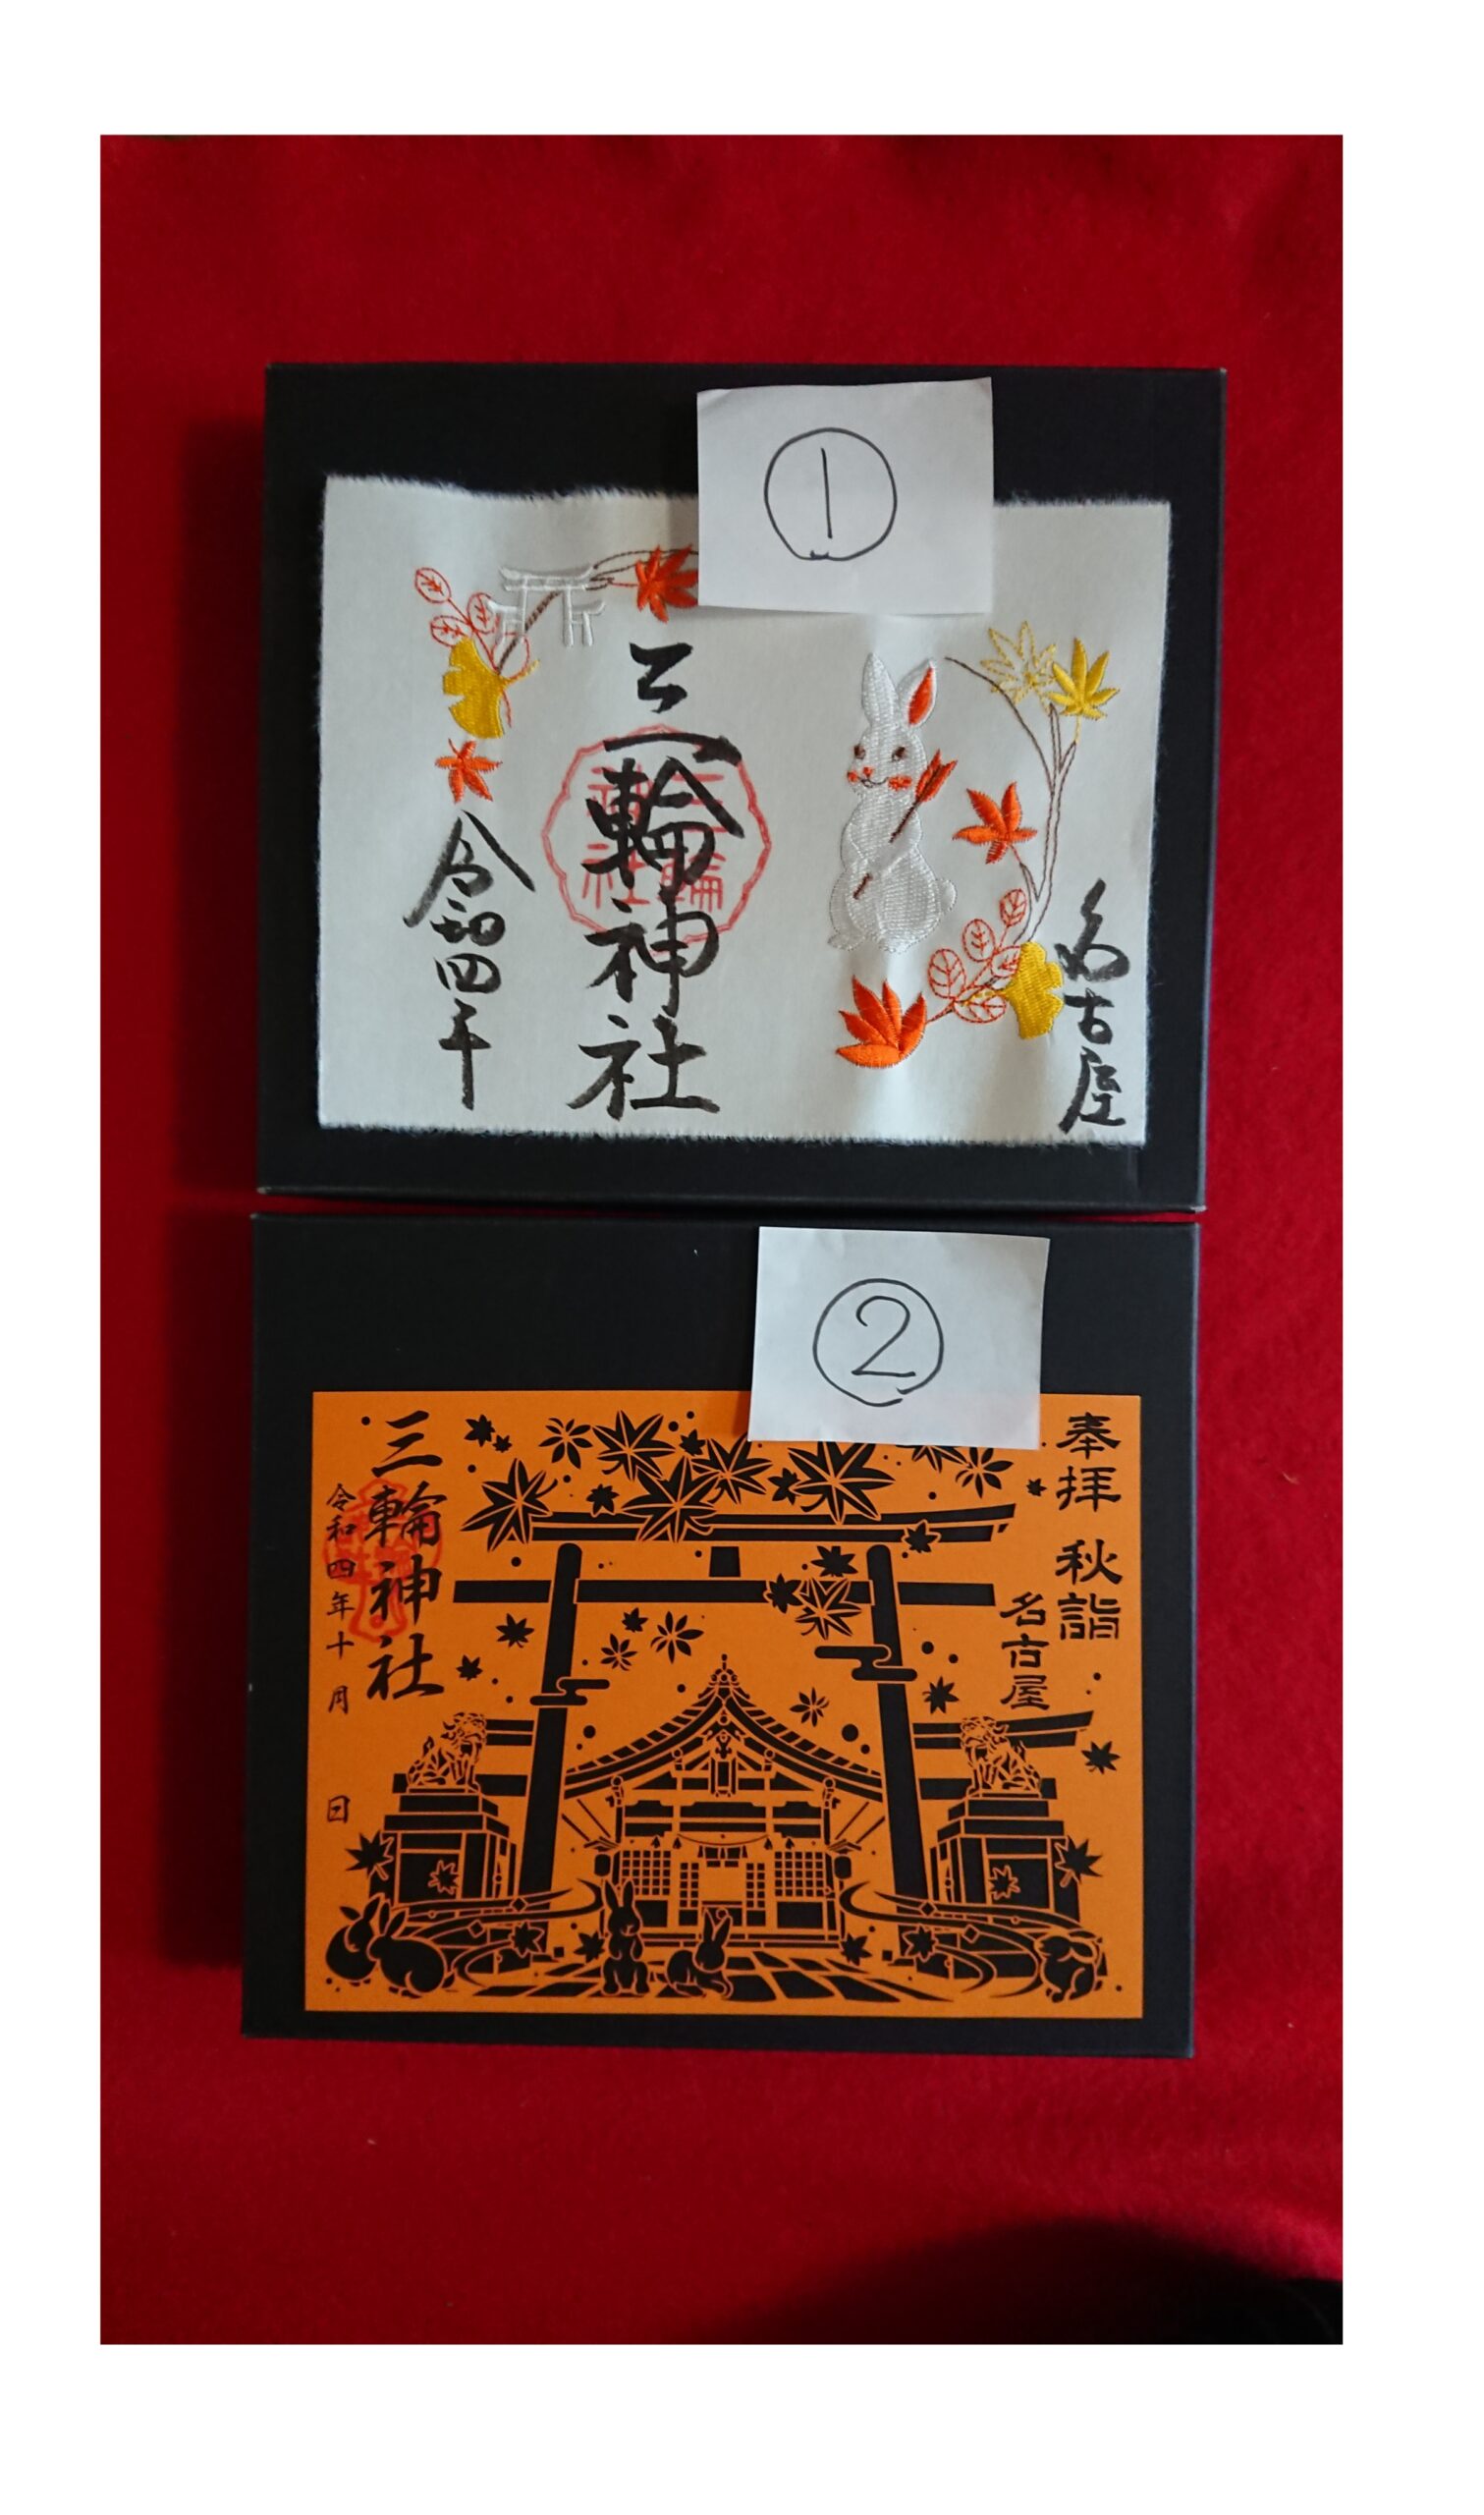 ①
名古屋
三輪神社
三輪神社
令和四年
②
奉拝 秋詣
名古屋
三輪神社
令和四年十月 日